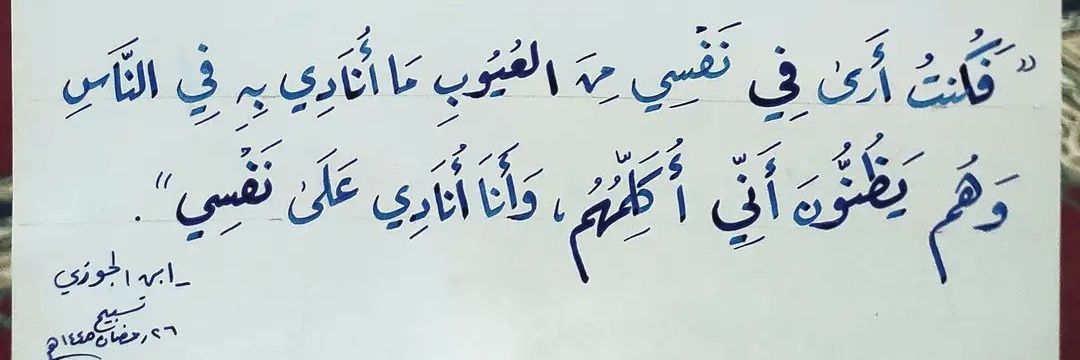 "فَكُنتُ أَرَىٰ فِي نَفْسِي مِنَ العُيُوبِ مَا أُنَادِي بِهِ فِي النَّاسِ
وَهُم يَظُنُّونَ أَنِّي أُكَلِّمُهُم، وَأَنَا أُنَادِي عَلَىٰ نَفْسِي".
_ ابن الجوزي
تسبيح
٢٦ رمضان ١٤٤٥هـ